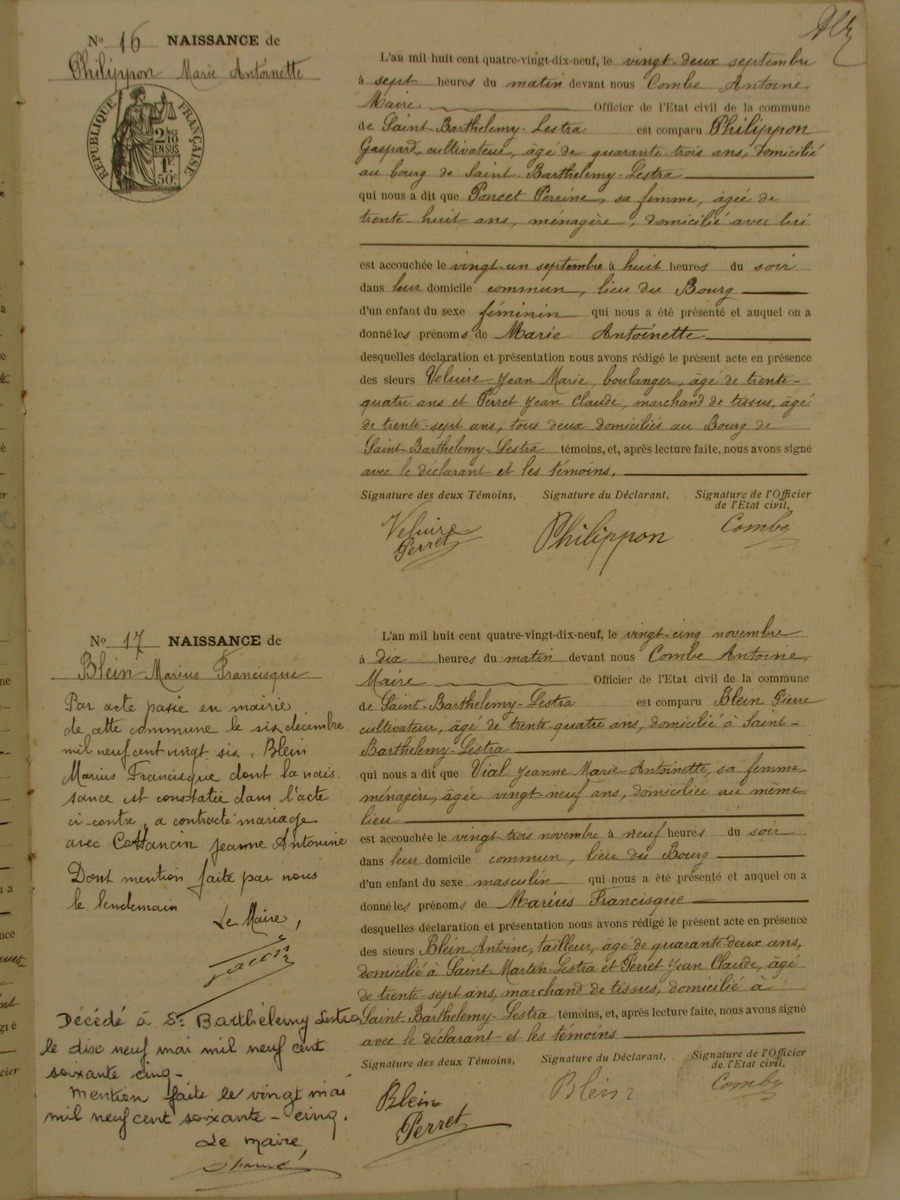 N° 16 NAISSANCE de
Philippon Marie Antoinette
RÉPUBLIQUE FRANÇAISE
2/10
EN SUS
1F.
50c
L'an mil huit cent quatre-vingt-dix-neuf, le vingt deux septembre
à sept heures du matin devant nous Combe Antoine,
Maire Officier de l'Etat civil de la commune
de Saint-Barthelemy-Lestra est comparu Philippon
Gaspard, cultivateur, âgé de quarante trois ans, domicilié
au bourg de Saint Barthelemy-Lestra
qui nous a dit que Poncet Perrine, sa femme, âgée de
trente-huit ans, ménagère, domicilié avec lui
est accouchée le vingt-un septembre à huit heures du soir
dans leur domicile commun, lieu du Bourg
d'un enfant du sexe féminin qui nous a été présenté et auquel on a
donné les prénoms de Marie Antoinette
desquelles déclaration et présentation nous avons rédigé le présent acte en présence
des sieurs Veluire Jean Marie, boulanger, âgé de trente-
quatre ans et Perret Jean Claude, marchand de tissus, âgé
de trente-sept ans, tous deux domiciliés au Bourg de
Saint-Barthelemy-Lestra témoins, et, après lecture faite, nous avons signé
avec le déclarant et les témoins,
Signature des deux Témoins, Signature du Déclarant, Signature de l'Officier
de l'Etat civil,
Veluire
Perret
Philippon
Combe
N° 17 NAISSANCE de
Blein Marius Francisque
Par acte passé en mairie
de cette commune le six décembre
mil neuf cent vingt six, Blein
Marius Francisque dont la nais
sance est constatée dans l'acte
ci-contre, a contracté mariage
avec Cottancin Jeanne Antonine
Dont mention faite par nous
le lendemain
Le Maire,
Décédé à St Barthélemy Lestra
le dix neuf mai mil neuf cent
soixante cinq-
Mention faite le vingt mai
mil neuf cent soixante-cinq.
Le Maire,
L'an mil huit cent quatre-vingt-dix-neuf, le vingt-cinq novembre
à dix heures du matin devant nous Combe Antoine,
Maire Officier de l'Etat civil de la commune
de Saint-Barthelemy-Lestra est comparu Blein Pierre
cultivateur, âgé de trente quatre ans, domicilié à Saint-
Barthelemy-Lestra
qui nous a dit que Vial Jeanne Marie Antoinette, sa femme,
ménagère, âgée vingt-neuf ans, domiciliée au même
lieu
est accouchée le vingt-trois novembre à neuf heures du soir
dans leur domicile commun, lieu du Bourg
d'un enfant du sexe masculin qui nous a été présenté et auquel on a
donné les prénoms de Marius Francisque
desquelles déclaration et présentation nous avons rédigé le présent acte en présence
des sieurs Blein Antoine, tailleur, âgé de quarante-deux ans,
domicilié à Saint-Martin-Lestra et Perret Jean Claude, âgé
de trente-sept ans, marchand de tissus, domicilié à
Saint-Barthelemy-Lestra témoins, et, après lecture faite, nous avons signé
avec le déclarant et les témoins
Signature des deux Témoins, Signature du Déclarant, Signature de l'Officier
de l'Etat civil,
Blein
Perret
Blein
Combe